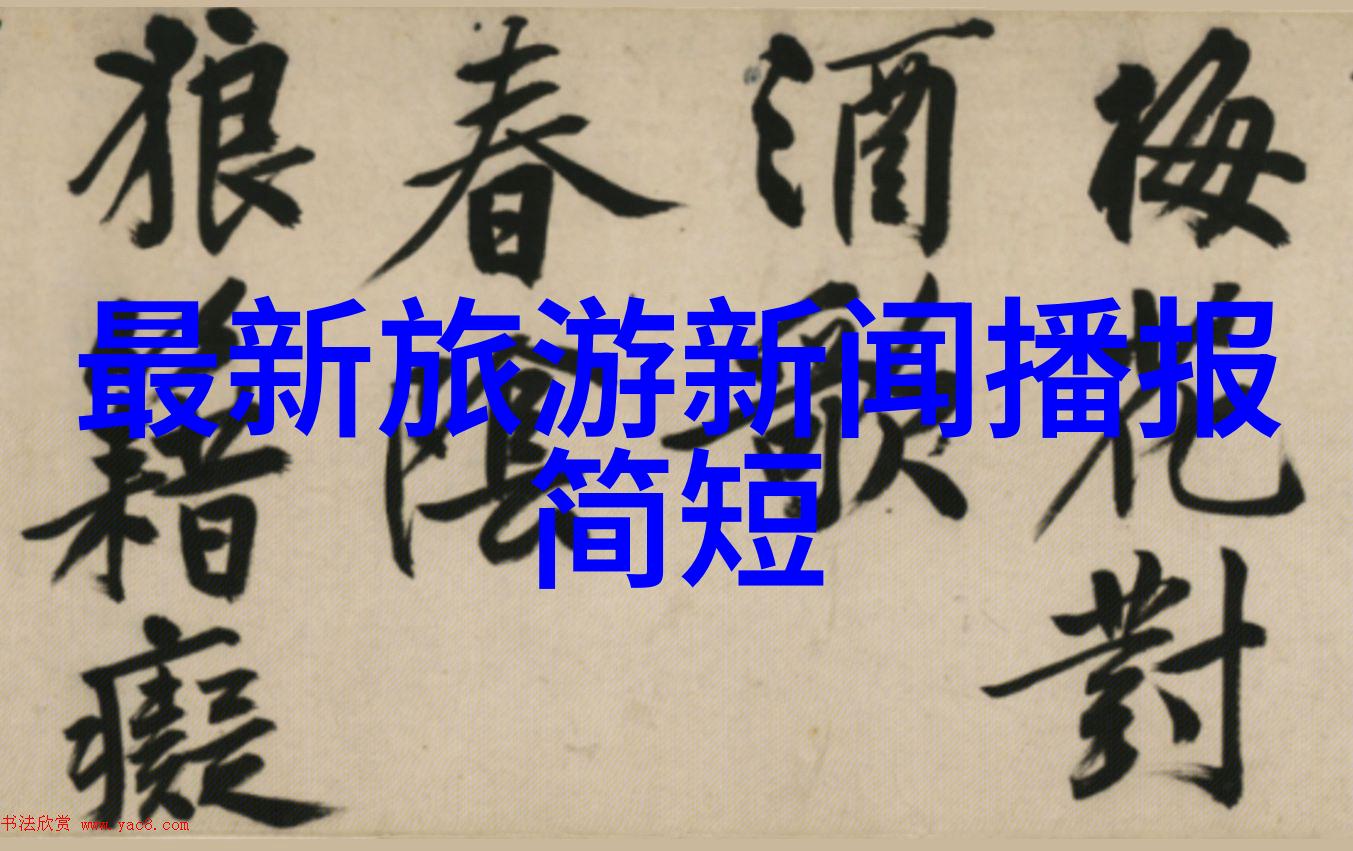 最新旅游新闻播报
简短
梅花對
酒歌
春陰
狼籍癡
书法欣赏 www.yac8.com